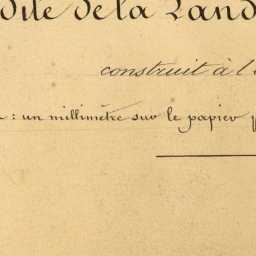 dite de la Land
construit à l
: un millimètre sur le papier p